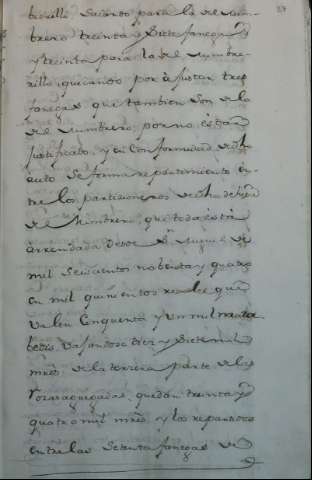 brerillo, sacando para la de Num-
brero treinta y siete fanegas
y treinta para la de Numbre-
rillo, quedando por ajustar tres
fanegas que tambien son de la
de Numbrero por no estar
justificado, y en conformidad de dho
auto se forma repartimiento en-
tre los partisioneros de dha dehesa
de Numbrero, que toda está
arrendada desde Sn Miguel de
mil seiscientos nobenta y quatro
en mil quinientos reales que
valen cinquenta y un mil mara-
bedis, bajandose diez y siete mil
mrs. de la tercera parte de las
yerbas agregadas, quedan treinta y
quatro mil mrs. y los repartidos
entre las setenta fanegas de